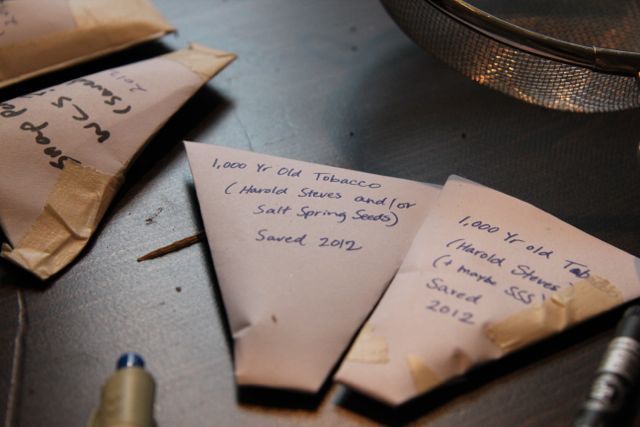 Snap Pe
W.C.S.
(Saved
2012
1,000 Yr Old Tobacco
(Harold Steves and/or
Salt Spring Seeds)
Saved 2012
1,000 Yr old
(Harold Steves
(+ maybe SSS)
Saved
2012